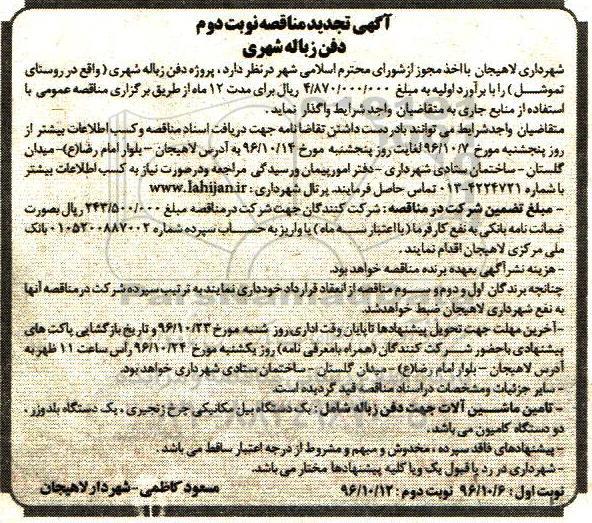 آگهی تجدید مناقصه نوبت دوم
دفن زباله شهری
شهرداری لاهیجان با اخذ مجوز از شورای محترم اسلامی شهر در نظر دارد ، پروژه دفن زباله شهری ( واقع در روستای
تموشل ) را با برآورد اولیه به مبلغ ۴/۸۷۰/۰۰۰/۰۰۰ ریال برای مدت ۱۲ ماه از طریق برگزاری مناقصه عمومی با
استفاده از منابع جاری به متقاضیان واجد شرایط واگذار نماید .
متقاضیان واجد شرایط می توانند با در دست داشتن تقاضا نامه جهت دریافت اسناد مناقصه و کسب اطلاعات بیشتر از
روز پنجشنبه مورخ ۹۶/۱۰/۷ لغایت روز پنجشنبه مورخ ۹۶/۱۰/۱۴ به آدرس لاهیجان – بلوار امام رضا(ع)– میدان
گلستان – ساختمان ستادی شهرداری – دفتر امور پیمان و رسیدگی مراجعه و در صورت نیاز به کسب اطلاعات بیشتر
با شماره ۴۲۲۴۷۲۱-۰۱۳ تماس حاصل فرمایند. پرتال شهرداری : www.lahijan.ir
– مبلغ تضمین شرکت در مناقصه : شرکت کنندگان جهت شرکت در مناقصه مبلغ ۲۴۳/۵۰۰/۰۰۰ ریال بصورت
ضمانت نامه بانکی به نفع کارفرما ( با اعتبار سه ماه ) یا واریز به حساب سپرده شماره ۰۱۰۵۲۰۰۸۸۷۰۰۲ بانک
ملی مرکزی لاهیجان اقدام نمایند .
– هزینه نشر آگهی بعهده برنده مناقصه خواهد بود.
چنانچه برندگان اول و دوم و سوم مناقصه از انعقاد قرارداد خودداری نمایند به ترتیب سپرده شرکت در مناقصه آنها
به نفع شهرداری لاهیجان ضبط خواهد شد.
–آخرین مهلت جهت تحویل پیشنهادها تا پایان وقت اداری روز شنبه مورخ ۹۶/۱۰/۲۳ و تاریخ بازگشایی پاکت های
پیشنهادی با حضور شرکت کنندگان (همراه با معرفی نامه) روز یکشنبه مورخ ۹۶/۱۰/۲۴ رأس ساعت ۱۱ ظهر به
آدرس لاهیجان – بلوار امام رضا(ع) – میدان گلستان – ساختمان ستادی شهرداری خواهد بود.
– سایر جزئیات و مشخصات در اسناد مناقصه قید گردیده است.
– تامین ماشین آلات جهت دفن زباله شامل : یک دستگاه بیل مکانیکی چرخ زنجیری ، یک دستگاه بلدوزر ،
دو دستگاه کامیون می باشد.
– پیشنهادهای فاقد سپرده ، مخدوش و مبهم و مشروط از درجه اعتبار ساقط می باشد .
– شهرداری در رد یا قبول یک و یا کلیه پیشنهادها مختار می باشد.
نوبت اول : ۹۶/۱۰/۶ نوبت دوم : ۹۶/۱۰/۱۲ مسعود کاظمی – شهردار لاهیجان